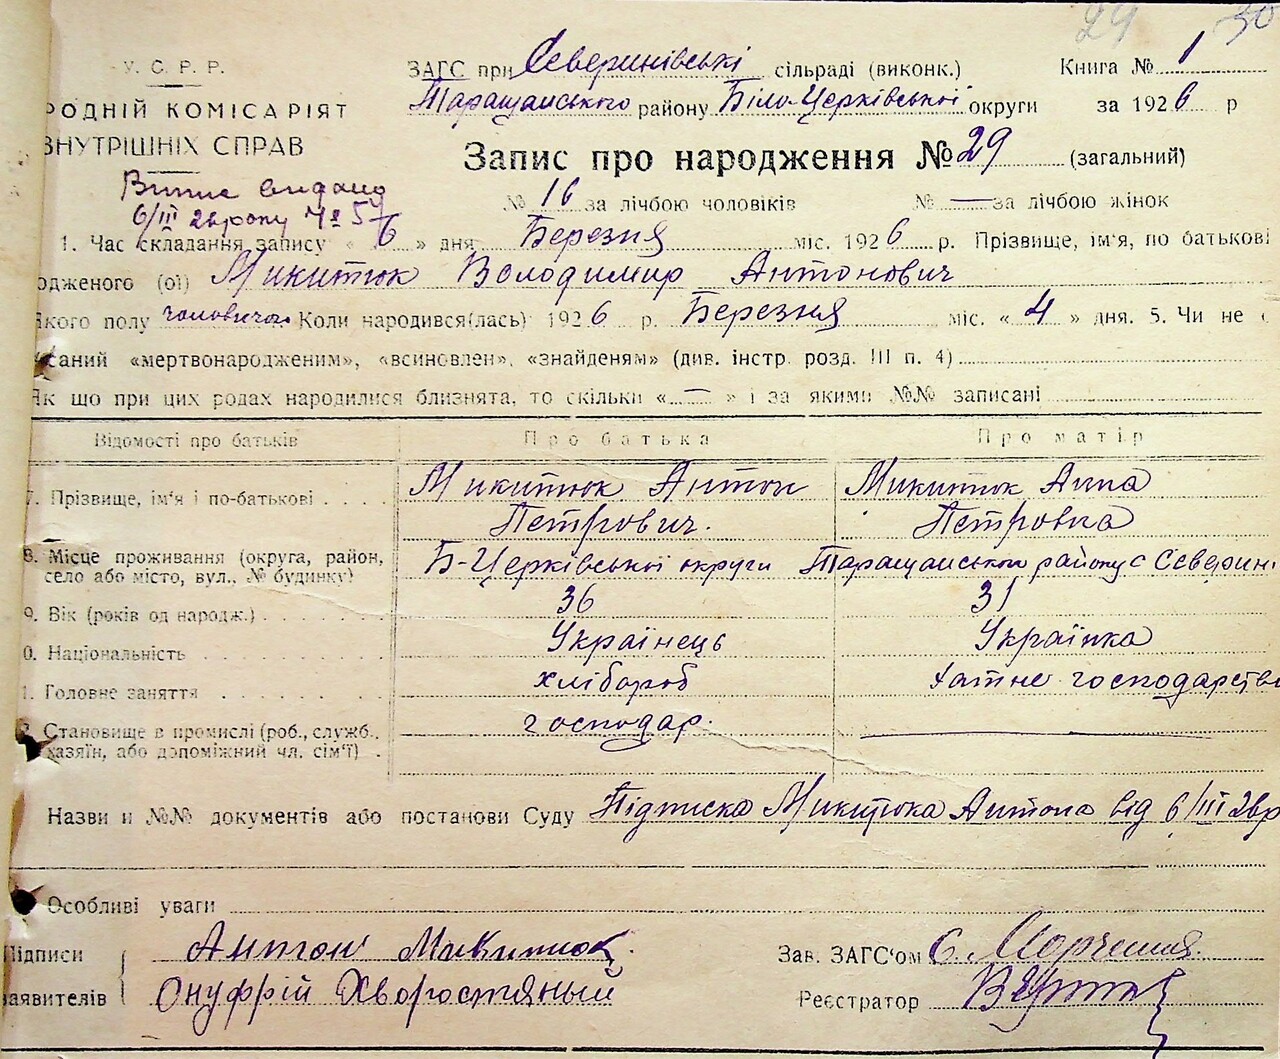 29 30
У. С. Р. Р.
РОДНІЙ КОМІСАРІЯТ
ВНУТРІШНІХ СПРАВ
ЗАГС при Северинівські сільраді (виконк.) Книга № 1
Таращанського району Біло-Церківської округи за 1926 р
Запис про народження № 29 (загальний)
Випис видано
6/III 26 року № 57
№ 16 за лічбою чоловіків № — за лічбою жінок
1. Час складання запису « 6 » дня Березня міс. 1926 р. Прізвище, ім'я, по батькові
одженого (ої) Микитюк Володимир Антонович
Якого полу чоловичого Коли народився(лась) 1926 р. Березня міс. « 4 » дня. 5. Чи не
саний «мертвонародженим», «всиновлен», «знайденям» (див. інстр. розд. III п. 4)
Як що при цих родах народилися близнята, то скільки « — » і за якими №№ записані
Відомості про батьків Про батька Про матір
7. Прізвище, ім'я і по-батькові Микитюк Антон Микитюк Анна
Петрович. Петровна
8. Місце проживання (округа, район, Б-Церківської округи Таращанського району с Северин
село або місто, вул., № будинку)
9. Вік (років од народж.) 36 31
0. Національність Українець Українка
1. Головне заняття хлібороб хатне господарство
2. Становище в промислі (роб., служб., господар.
хазяїн, або допоміжний чл. сім'ї)
Назви и №№ документів або постанови Суду Підписка Микитюка Антона від 6/III 26р
Особливі уваги
Підписи Антон Микитюк. Зав. ЗАГС'ом С.
заявителів Онуфрій Хворостяный Реєстратор